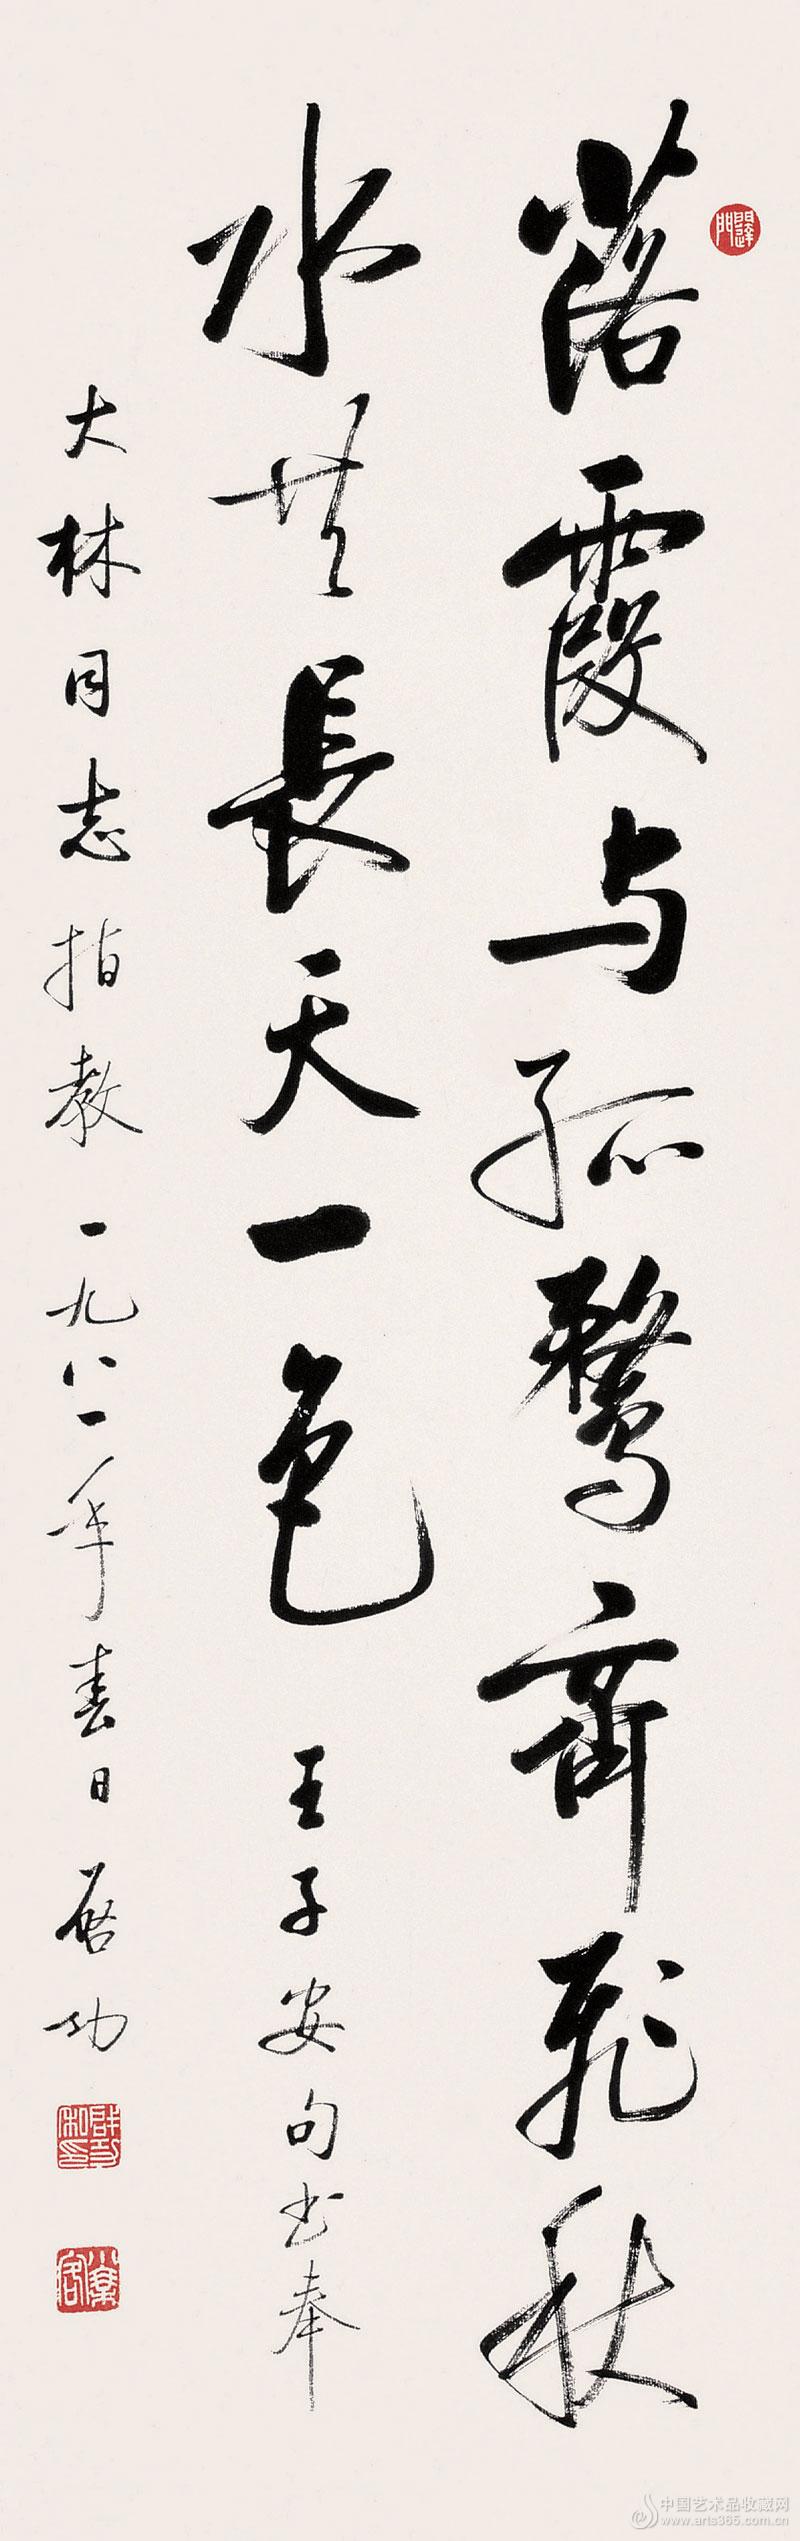 落霞与孤鹜齊飛秋
水共長天一色 王子安句书奉
大林同志指教 一九八一年春日 启功
中国艺术品收藏网
www.arts365.com.cn